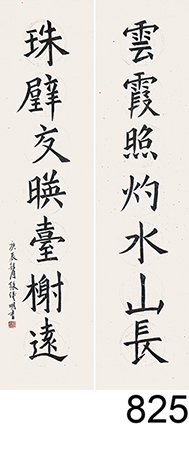 雲霞照灼水山長
珠璧交暎臺榭遠
庚辰 書
825